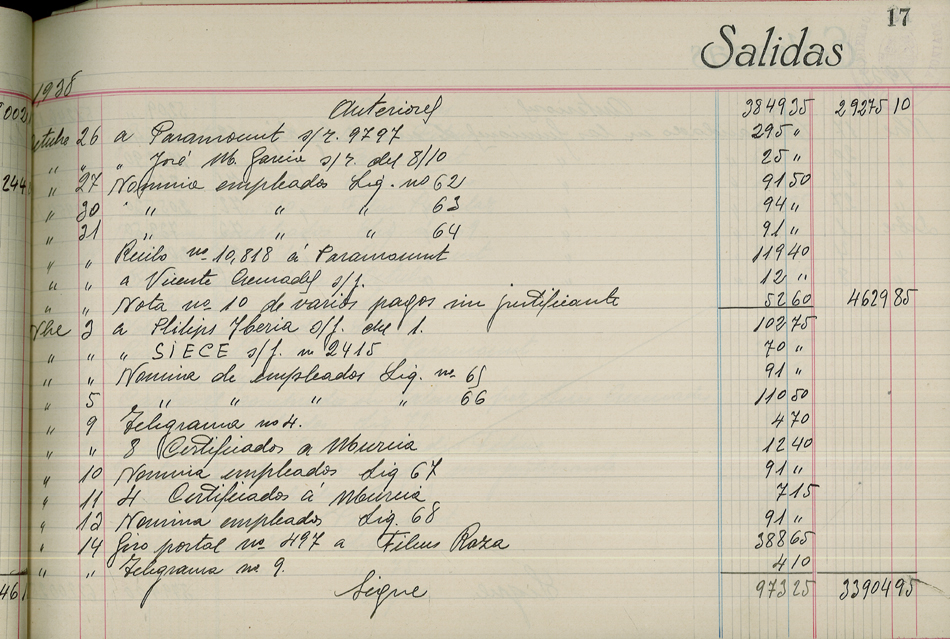 17
Salidas
1938
Anteriores 384935 2927510
Octubre 26 a Paramount s/r. 9797 295 "
" " " José M. Garcia s/r. del 8/10 25 "
" 27 Nomina empleados Liq. nº 62 9150
" 30 " " " 63 94 "
" 31 " " " 64 91 "
" " Recibo nº 10,818 á Paramount 11940
" " a Vicente s/f. 12 "
" " Nota nº 10 de varios pagos sin justificante 5260 462985
Nbe 3 a Philips Iberia s/f. del 1. 10275
" " " SIECE s/f. n 2415 70 "
" " Nomina de empleados Liq. nº 65 91 "
" 5 " " " " 66 11050
" 9 Telegrama nº 4. 470
" " 8 Certificados a Murcia 1240
" 10 Nomina empleados Liq 67 91 "
" 11 4 Certificados á Murcia 715
" 12 Nomina empleados Liq. 68 91 "
" 14 Giro postal nº 497 a Films Raza 38865
" " Telegrama nº 9. 410
Sigue 97325 3390495